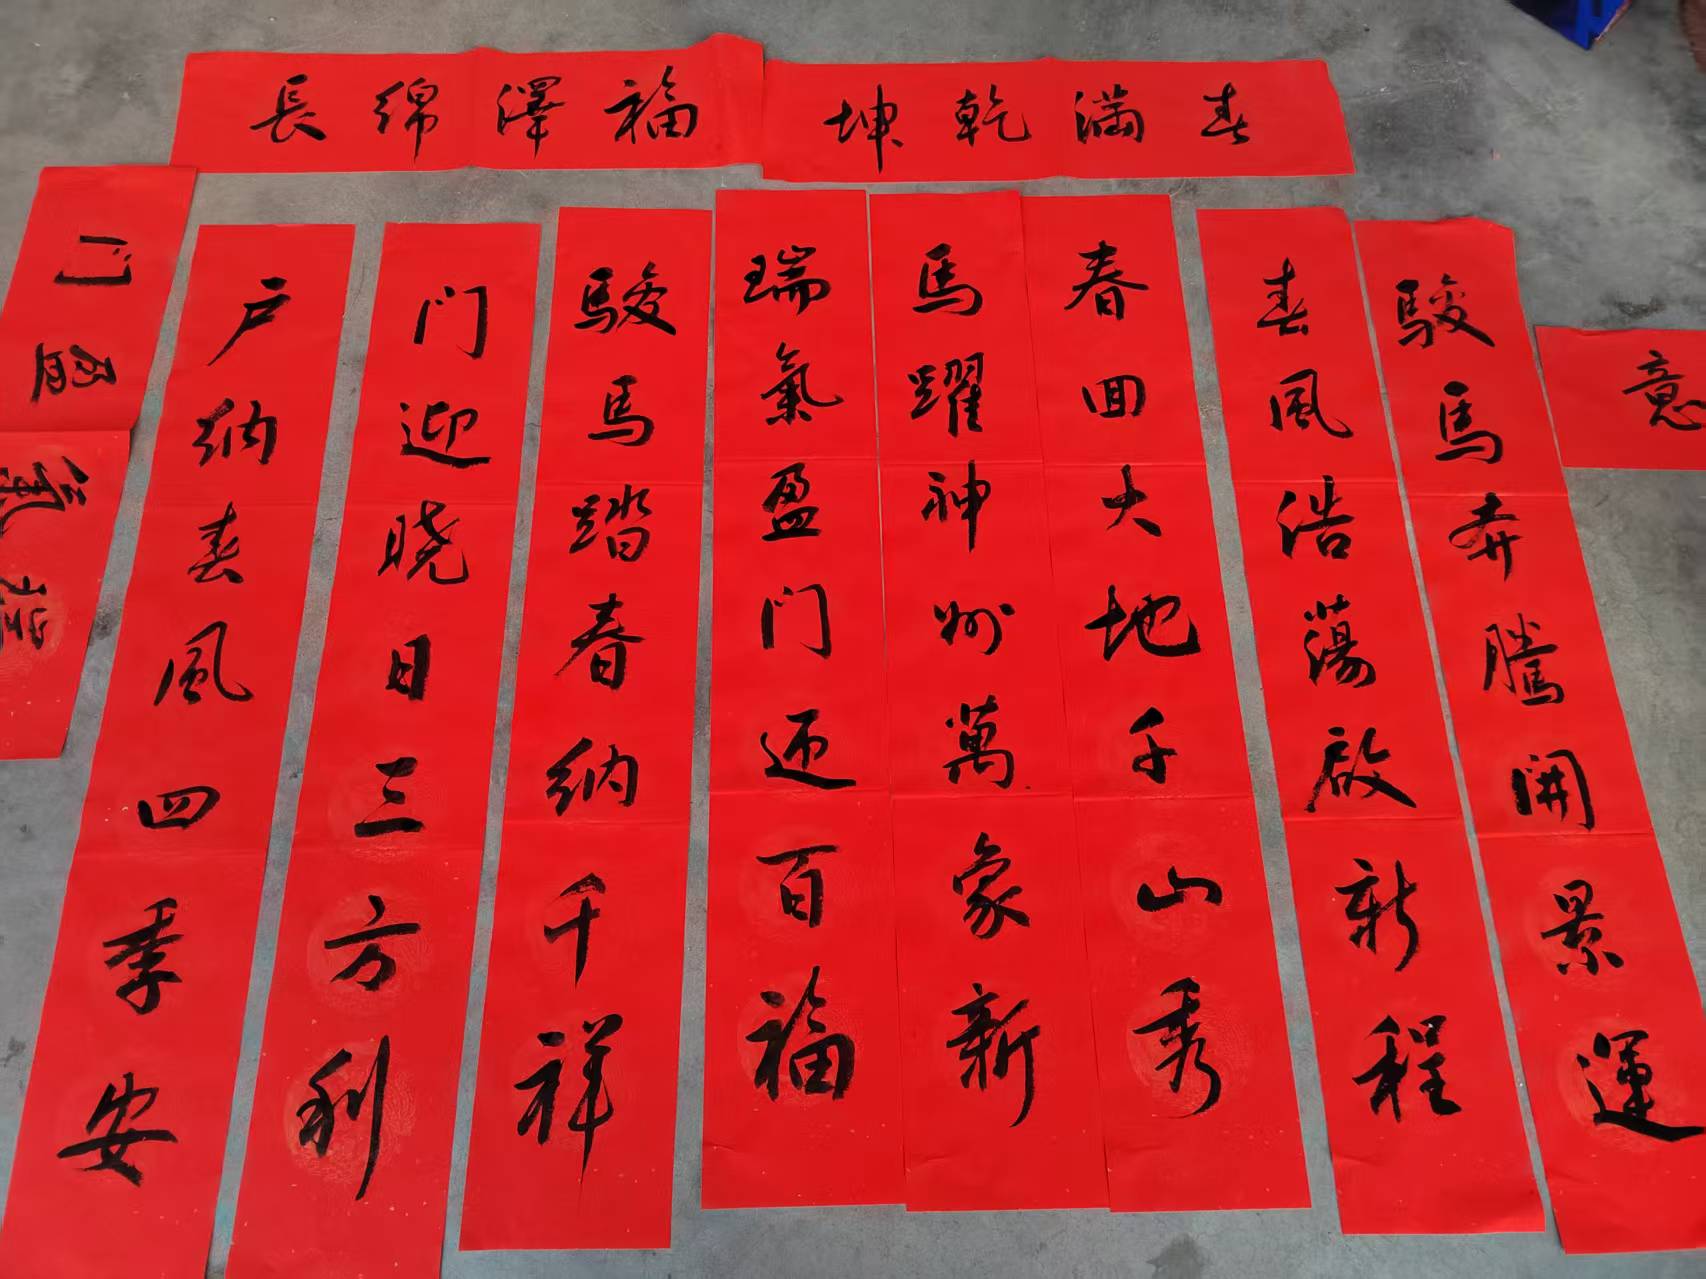 春满乾坤
福澤绵長
意
駿馬奔騰開景運
春風浩蕩啟新程
春回大地千山秀
馬躍神州萬象新
瑞氣盈门迎百福
駿馬踏春纳千祥
门迎晓日三方利
户纳春風四季安
瑞氣盈门